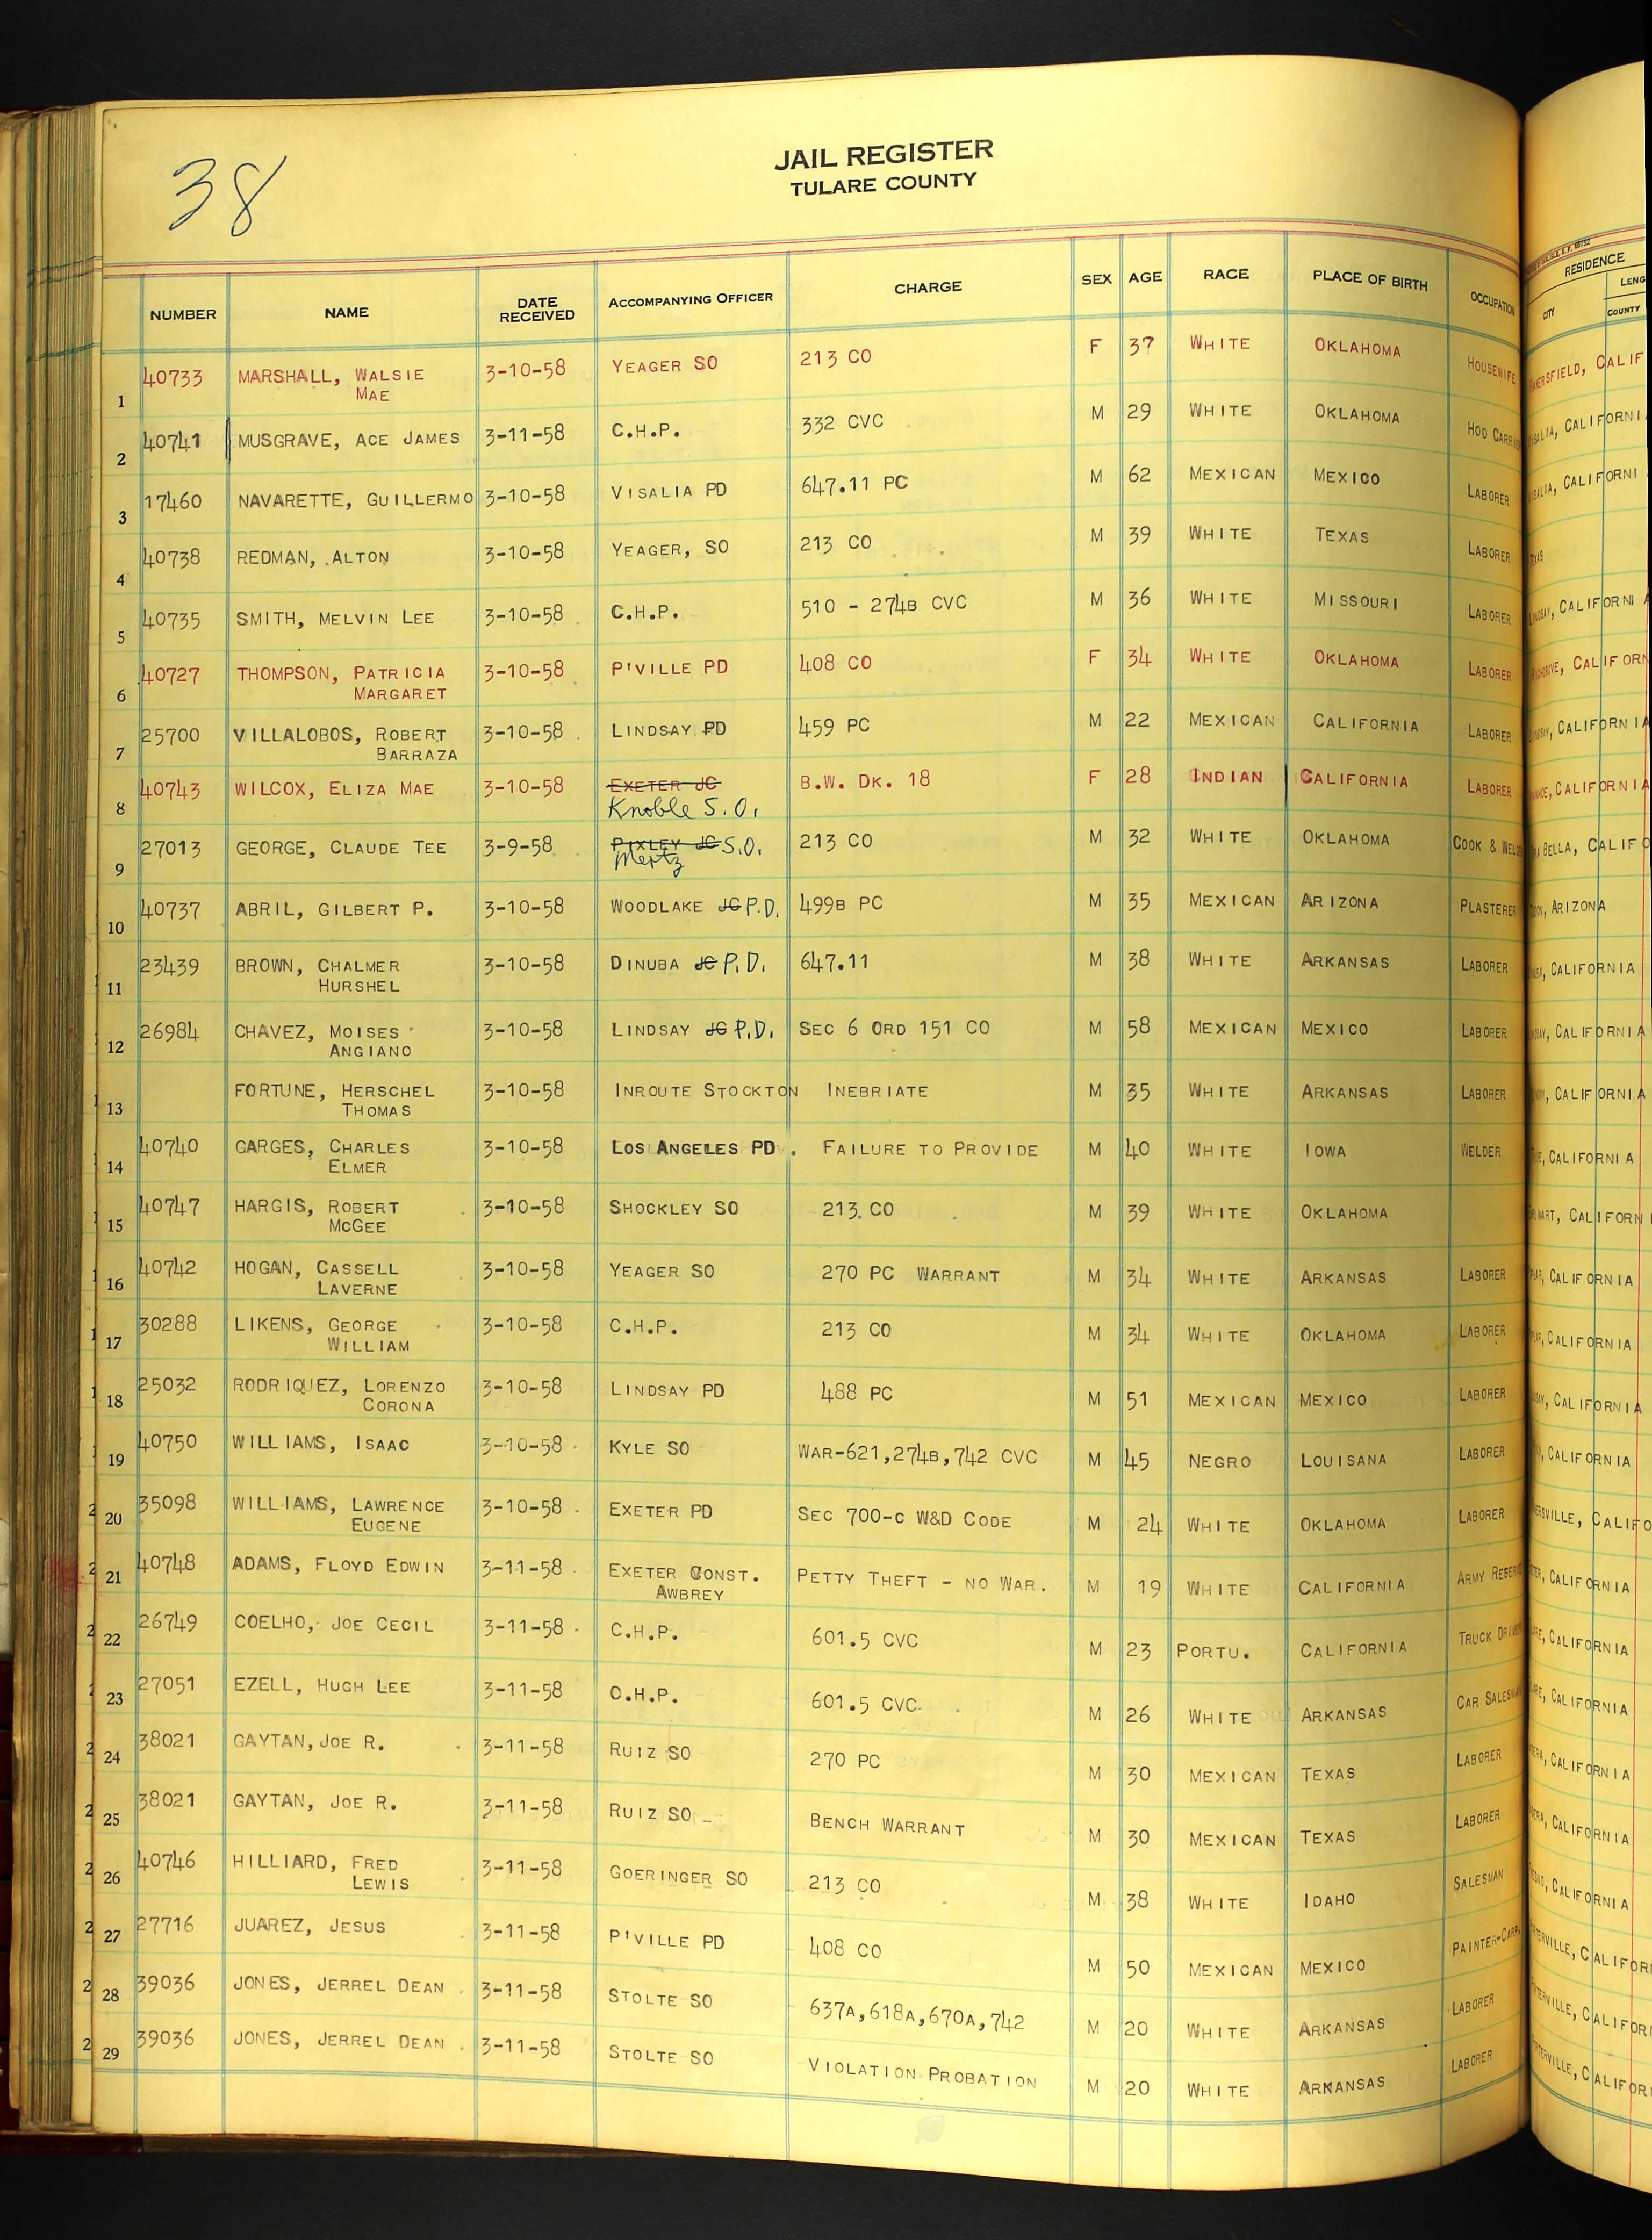 38
JAIL REGISTER
TULARE COUNTY
NUMBER NAME DATE RECEIVED ACCOMPANYING OFFICER CHARGE SEX AGE RACE PLACE OF BIRTH OCCUPATION RESIDENCE CITY LENG COUNTY
1 40733 MARSHALL, WALSIE MAE 3-10-58 YEAGER SO 213 CO F 37 WHITE OKLAHOMA HOUSEWIFE CALIF
2 40741 MUSGRAVE, ACE JAMES 3-11-58 C.H.P. 332 CVC M 29 WHITE OKLAHOMA HOD CALIFORNI
3 17460 NAVARETTE, GUILLERMO 3-10-58 VISALIA PD 647.11 PC M 62 MEXICAN MEXICO LABORER CALIFORNI
4 40738 REDMAN, ALTON 3-10-58 YEAGER, SO 213 CO M 39 WHITE TEXAS LABORER
5 40735 SMITH, MELVIN LEE 3-10-58 C.H.P. 510 - 274B CVC M 36 WHITE MISSOURI LABORER CALIFORNI
6 40727 THOMPSON, PATRICIA MARGARET 3-10-58 P'VILLE PD 408 CO F 34 WHITE OKLAHOMA LABORER CALIFORN
7 25700 VILLALOBOS, ROBERT BARRAZA 3-10-58 LINDSAY PD 459 PC M 22 MEXICAN CALIFORNIA LABORER CALIFORNIA
8 40743 WILCOX, ELIZA MAE 3-10-58 EXETER JC Knoble S.O. B.W. DK. 18 F 28 INDIAN CALIFORNIA LABORER CALIFORNIA
9 27013 GEORGE, CLAUDE TEE 3-9-58 PIXLEY JC S.O. Mertz 213 CO M 32 WHITE OKLAHOMA COOK & BELLA, CALIF
10 40737 ABRIL, GILBERT P. 3-10-58 WOODLAKE JC P.D. 499B PC M 35 MEXICAN ARIZONA PLASTERER ARIZONA
11 23439 BROWN, CHALMER HURSHEL 3-10-58 DINUBA JC P.D. 647.11 M 38 WHITE ARKANSAS LABORER CALIFORNIA
12 26984 CHAVEZ, MOISES ANGIANO 3-10-58 LINDSAY JC P.D. SEC 6 ORD 151 CO M 58 MEXICAN MEXICO LABORER CALIFORNIA
13 FORTUNE, HERSCHEL THOMAS 3-10-58 INROUTE STOCKTON INEBRIATE M 35 WHITE ARKANSAS LABORER CALIFORNIA
14 40740 GARGES, CHARLES ELMER 3-10-58 LOS ANGELES PD. FAILURE TO PROVIDE M 40 WHITE IOWA WELDER CALIFORNIA
15 40747 HARGIS, ROBERT MCGEE 3-10-58 SHOCKLEY SO 213 CO M 39 WHITE OKLAHOMA CALIFORN
16 40742 HOGAN, CASSELL LAVERNE 3-10-58 YEAGER SO 270 PC WARRANT M 34 WHITE ARKANSAS LABORER CALIFORNIA
17 30288 LIKENS, GEORGE WILLIAM 3-10-58 C.H.P. 213 CO M 34 WHITE OKLAHOMA LABORER CALIFORNIA
18 25032 RODRIQUEZ, LORENZO CORONA 3-10-58 LINDSAY PD 488 PC M 51 MEXICAN MEXICO LABORER CALIFORNIA
19 40750 WILLIAMS, ISAAC 3-10-58 KYLE SO WAR-621,274B,742 CVC M 45 NEGRO LOUISANA LABORER CALIFORNIA
20 35098 WILLIAMS, LAWRENCE EUGENE 3-10-58 EXETER PD SEC 700-C W&D CODE M 24 WHITE OKLAHOMA LABORER CALIFO
21 40748 ADAMS, FLOYD EDWIN 3-11-58 EXETER CONST. AWBREY PETTY THEFT - NO WAR. M 19 WHITE CALIFORNIA ARMY CALIFORNIA
22 26749 COELHO, JOE CECIL 3-11-58 C.H.P. 601.5 CVC M 23 PORTU. CALIFORNIA TRUCK CALIFORNIA
23 27051 EZELL, HUGH LEE 3-11-58 C.H.P. 601.5 CVC M 26 WHITE ARKANSAS CAR CALIFORNIA
24 38021 GAYTAN, JOE R. 3-11-58 RUIZ SO 270 PC M 30 MEXICAN TEXAS LABORER CALIFORNIA
25 38021 GAYTAN, JOE R. 3-11-58 RUIZ SO BENCH WARRANT M 30 MEXICAN TEXAS LABORER CALIFORNIA
26 40746 HILLIARD, FRED LEWIS 3-11-58 GOERINGER SO 213 CO M 38 WHITE IDAHO SALESMAN CALIFORNIA
27 27716 JUAREZ, JESUS 3-11-58 P'VILLE PD 408 CO M 50 MEXICAN MEXICO PAINTER-CARP. CALIFOR
28 39036 JONES, JERREL DEAN 3-11-58 STOLTE SO 637A,618A,670A,742 M 20 WHITE ARKANSAS LABORER CALIFOR
29 39036 JONES, JERREL DEAN 3-11-58 STOLTE SO VIOLATION PROBATION M 20 WHITE ARKANSAS LABORER CALIFOR